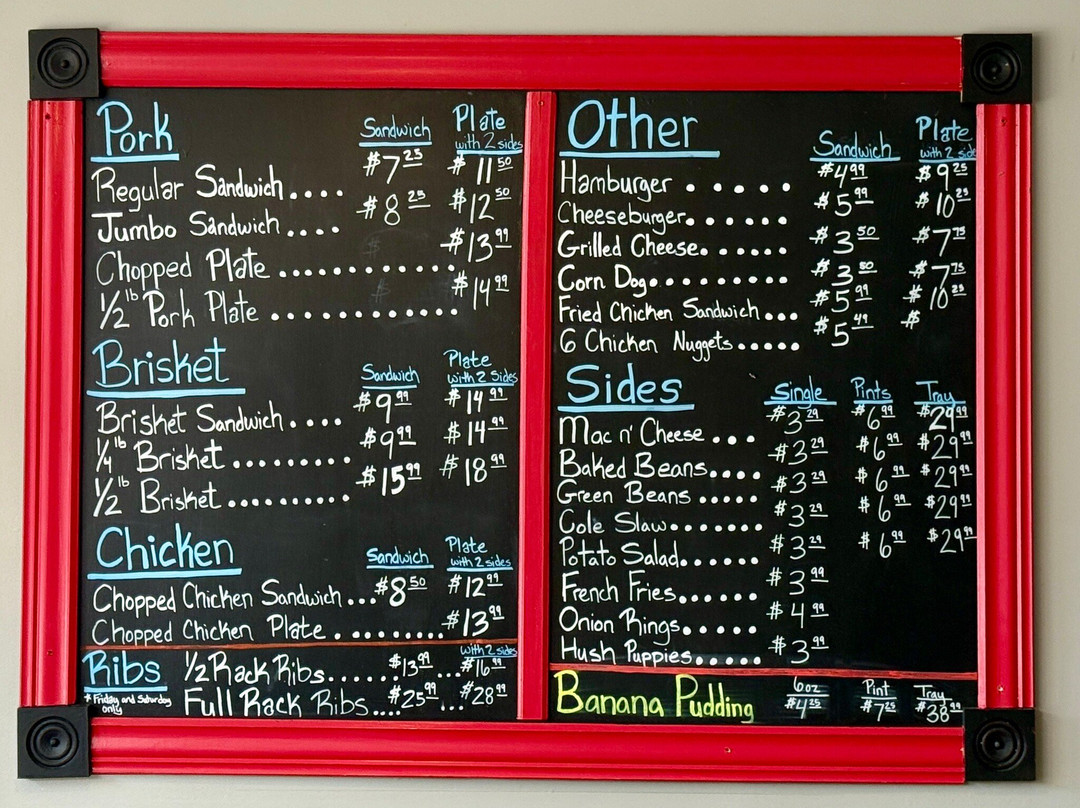 Pork Sandwich Plate with 2 sides
Regular Sandwich.... $7 25 $11 50
Jumbo Sandwich.... $8 25 $12 50
Chopped Plate ............. $13 99
1/2 lb Pork Plate ............. $14 99
Brisket Sandwich Plate with 2 Sides
Brisket Sandwich.... $9 99 $14 99
1/4 lb Brisket.......... $9 99 $14 99
1/2 lb Brisket.......... $15 99 $18 99
Chicken Sandwich Plate with 2 sides
Chopped Chicken Sandwich...$8 50 $12 99
Chopped Chicken Plate.........$13 99
with 2 sides
Ribs 1/2 Rack Ribs.......$13 99...$16 99
* Friday and Saturday only Full Rack Ribs....$25 99...$28 99
Other Sandwich Plate with 2 sides
Hamburger ...... $4 99 $9 25
Cheeseburger....... $5 99 $10 25
Grilled Cheese....... $3 50 $7 75
Corn Dog......... $3 50 $7 75
Fried Chicken Sandwich... $5 99 $10 25
6 Chicken Nuggets..... $5 49 $
Sides Single Pints Tray
Mac n' Cheese ... $3 29 $6 99 $29 99
Baked Beans.... $3 29 $6 99 $29 99
Green Beans ..... $3 29 $6 99 $29 99
Cole Slaw....... $3 29 $6 99 $29 99
Potato Salad...... $3 29 $6 99 $29 99
French Fries...... $3 99
Onion Rings...... $4 99
Hush Puppies..... $3 99
Banana Pudding 6oz $4 25 Pint $7 25 Tray $38 99